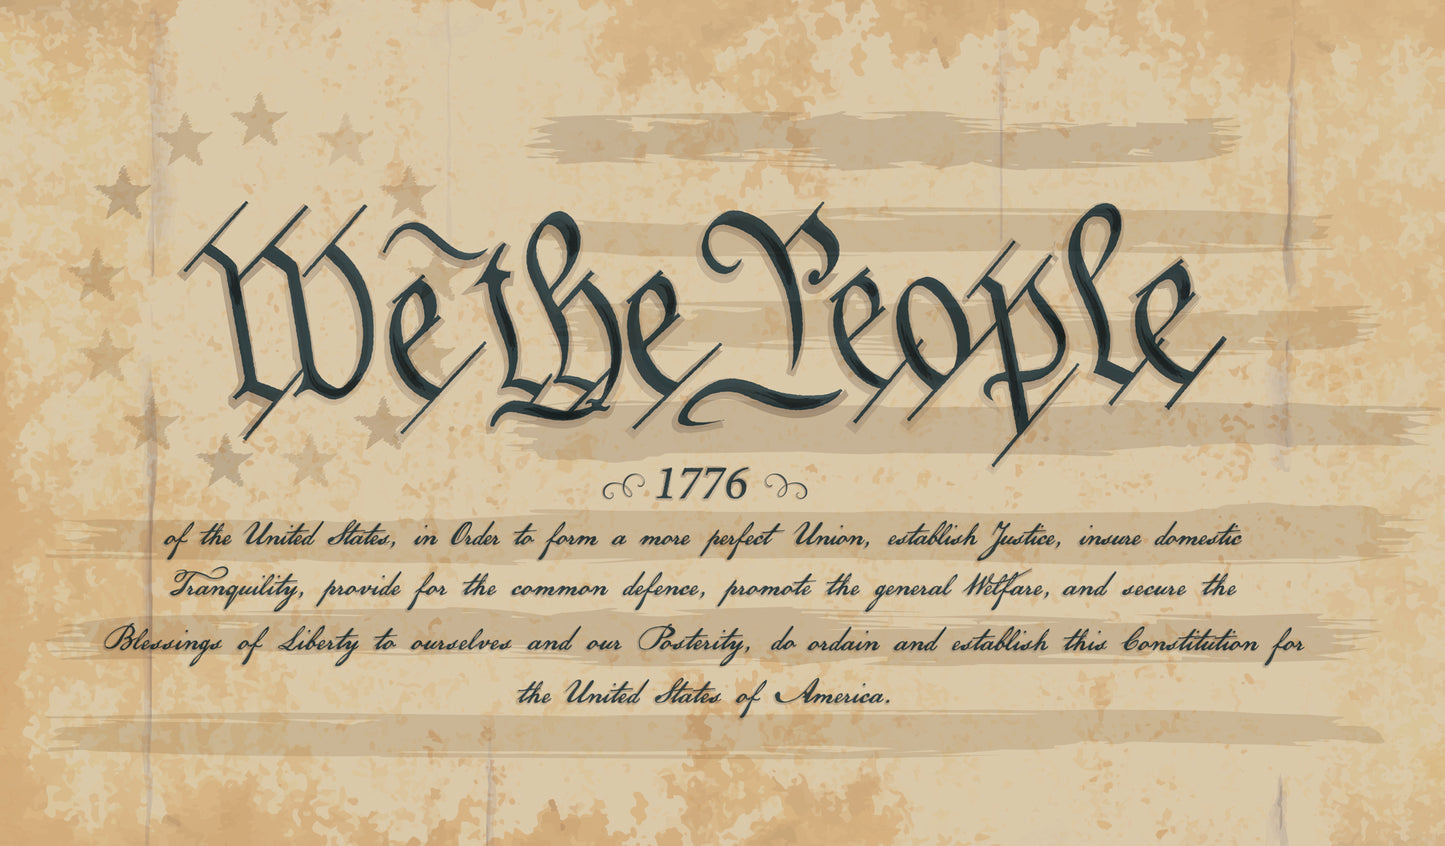 We the People
1776
of the United States, in Order to form a more perfect Union, establish Justice, insure domestic
Tranquility, provide for the common defence, promote the general Welfare, and secure the
Blessings of Liberty to ourselves and our Posterity, do ordain and establish this Constitution for
the United States of America.